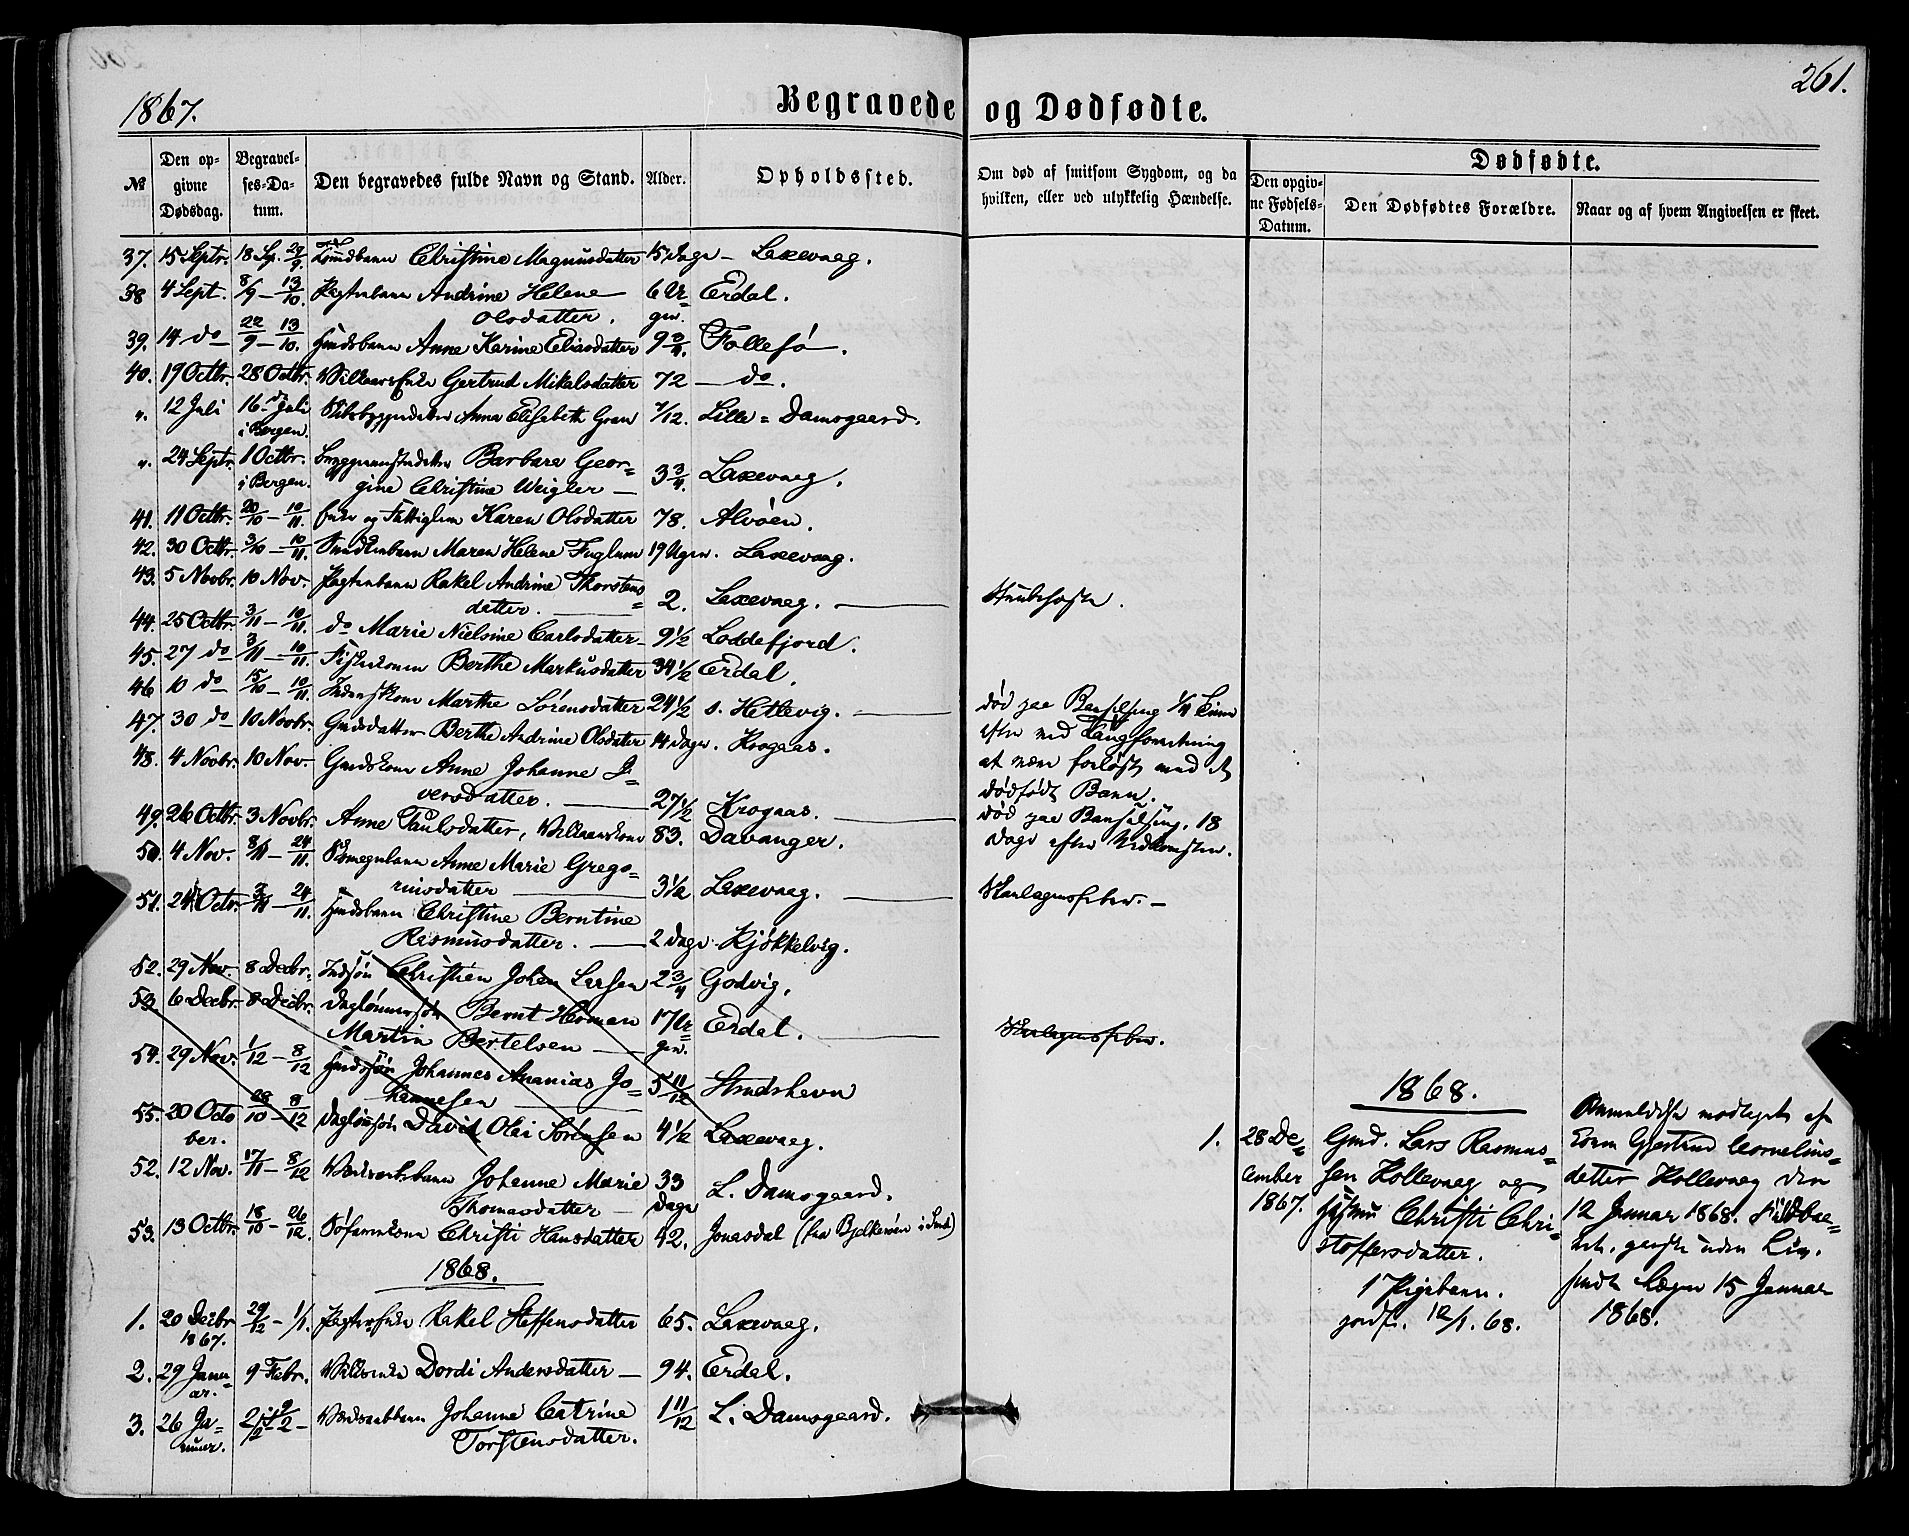 261.
1867.
Begravede og Dødfødte.
№
Den opgivne Dødsdag.
Begravelses-Datum.
Den begravedes fulde Navn og Stand.
Alder.
Opholdssted.
Om død af smitsom Sygdom, og da hvilken, eller ved ulykkelig Hændelse.
Dødfødte.
Den opgivne Fødsels-Datum.
Den Dødfødtes Forældre.
Naar og af hvem Angivelsen er skeet.
37. 15 Septr. 18 Sp. 29/9. Christine Magnusdatter 15 Dage – Laxevaag.
38 4 Sept. 8/9 – 13/10. Andrine Helene 6 Uger. Erdal.
Olsdatter.
39. 14 do 22/9 – 13/10. Anne Karine Eliasdatter 9 3/4. Follesø.
40. 19 Octbr. 28 Octbr. Gertrud Mikalsdatter 72 – do.
". 12 Juli 16 Juli Anna Elisabeth Gran /12. Lille = Damsgaard.
i Bergen.
". 24 Septr. 1 Octbr. Barbara Geor=
i Bergen. gine Christine Weigler – 3 3/4 Laxevaag.
41. 11 Octbr. 20/10 – 10/11. Enke og Fattiglem Karen Olsdatter 78. Alvøen.
42. 30 Octbr. 3/10 – 10/11. Maren Helene Fuglum 19 Uger. Laxevaag.
43. 5 Novbr. 10 Nov. Rakel Andrine Thorstens=
datter. 2. Laxevaag. Strubehoste.
44. 25 Octbr. 3/11 – 10/11. do Marie Nielsine Carlsdatter 9 1/2 Loddefjord.
45. 27 do 3/11 – 10/11. Berthe Markusdatter 34 1/2 Erdal.
46 10 do 15/10 – 10/11. Marthe Sørensdatter 24 1/2 s. Hetlevig. død paa Barselseng 1/4 Time
47. 30 do 10 Novbr. Gmdsdatter Berthe Andrine Olsdatter 14 Dage. Krogaas. efter ved Tangforretning
48. 4 Novbr. 10 Nov. Gmdskone Anne Johanne I= at være forløst med et
versdatter. 27 1/2 Krogaas. dødfødt Barn.
49. 26 Octbr. 3 Novbr. Anne Paulsdatter, Vilkaarskone 83. Davanger. død paa Barselseng, 18
50. 4 Nov. 8/11 – 24/11. Anne Marie Grego= Dage efter Nedkomsten.
riusdatter 3 1/2 Laxevaag. Skarlagensfeber. –
51. 24 Octr. 3/11 – 24/11. Christine Berntine
Rasmusdatter. 2 Dage Kjøkkelvig.
52. 29 Nov. 8 Decbr. Christien Johan Larsen 2 3/4 Godvig.
53. 6 Decbr. 8 Decbr. Daglønnersøn Bernt Herman 17 Uger. Erdal.
Martin Bertelsen Skarlagensfeber.
54. 29 Nov. 1/12 – 8/12 Johannes Ananias Jo=
hannesen 5 11/12 Strudshavn
55. 20 October. 28/10 – 8/12 David Olai Sørensen 4 1/2 Laxevaag.
52. 12 Nov. 17/11 – 8/12 Johanne Marie 33
Thomasdatter – Dage L. Damsgaard.
53. 13 Octbr. 18/10 – 26/12. Christi Hansdatter 42. Jonasdal (fra Bjelkerøen i Sund)
1868.
1. 20 Decbr 1867. 29/12 – 1/1. Rakel Steffensdatter 65. Laxevaag.
2. 29 Januar. 9 Febr. Dordi Andersdatter – 94. Erdal.
3. 26 Januar. Johanne Catrine 1 11/12 L. Damsgaard.
Torstensdatter.
1868.
1. 28 December 1867.
Gmd. Lars Rasmus=
sen Hollevaag og
Hustru Christi Chri=
stoffersdatter.
1 Pigebarn.
jordf. 12/1. 68.
Anmeldelse modtaget af
Konen Gjertrud Cornelius=
datter Hollevaag den
12 Januar 1868. Fuldbaa=
ret, født uden Liv.
Sendt Lægen 15 Januar
1868.